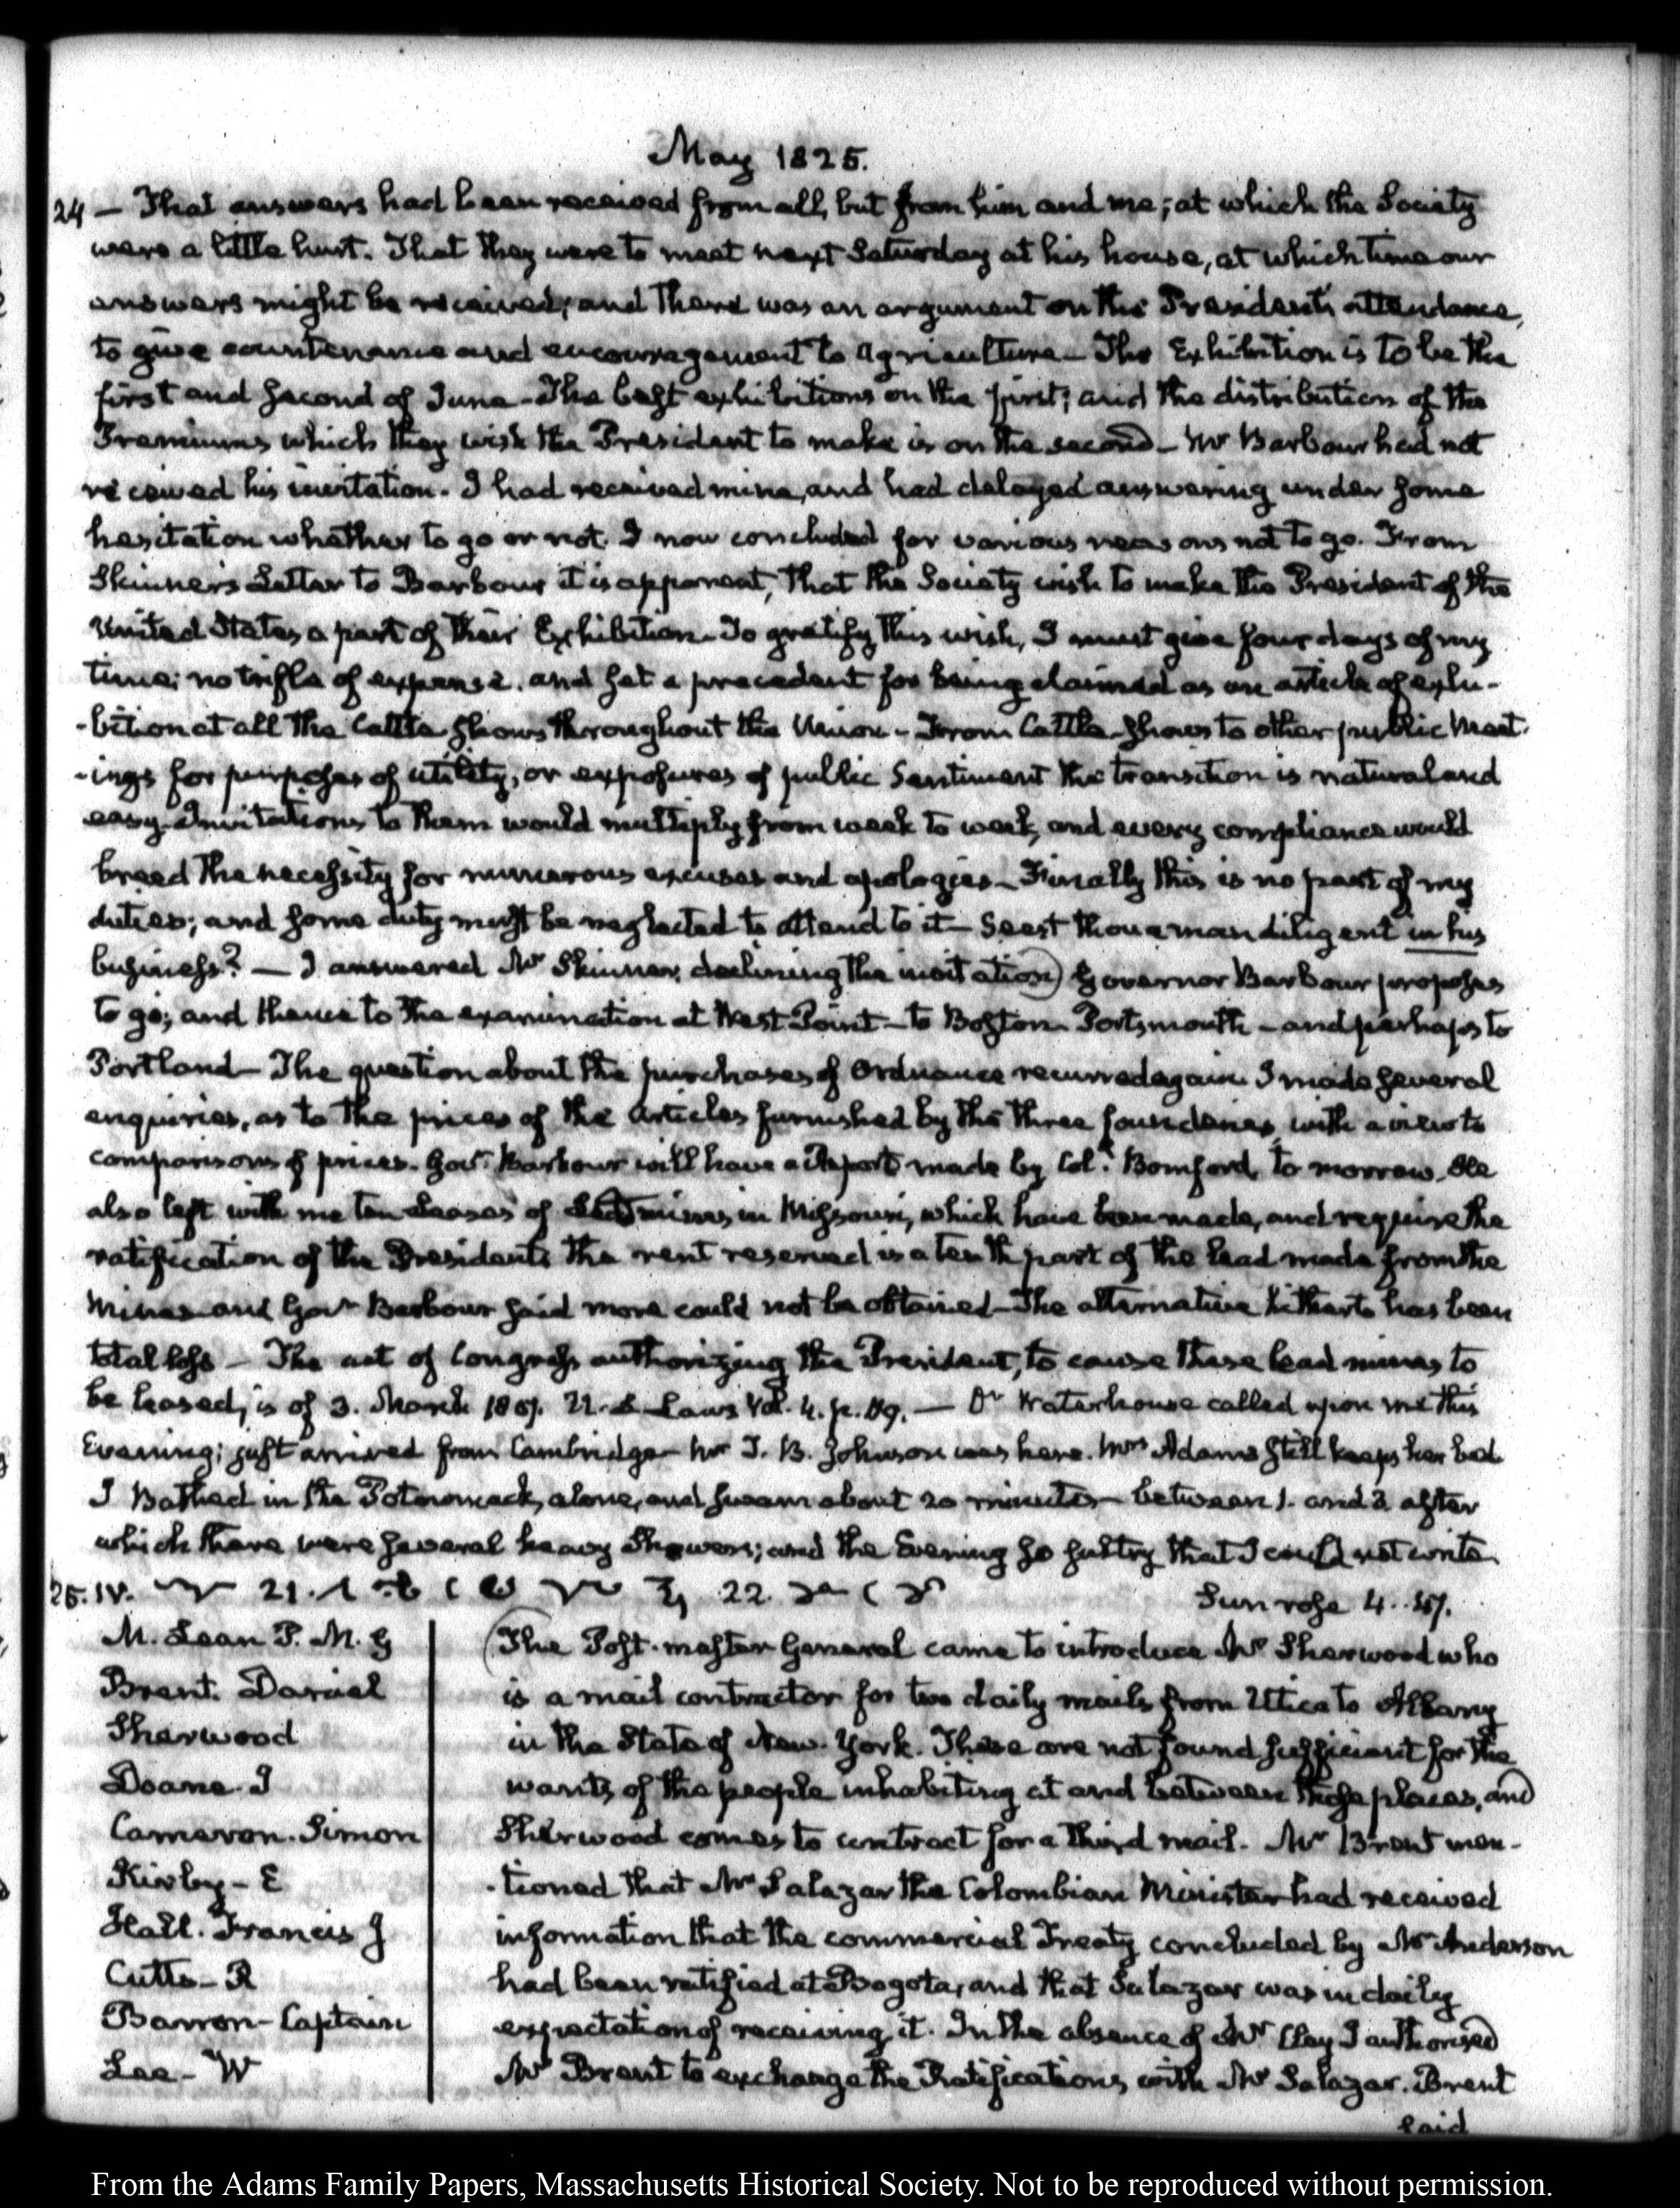 May 1825.
24 — That answers had been received from all, but from him and me; at which the Society
were a little hurt. That they were to meet next Saturday at his house, at which time our
answers might be received; and there was an argument on the Presidents attendance,
to give countenance and encouragement to Agriculture — The Exhibition is to be the
first and second of June — The best exhibitions on the first; and the distribution of the
Premiums which they wish the President to make is on the second — Mr Barbour had not
received his invitation. I had received mine, and had delayed answering under some
hesitation whether to go or not. I now concluded for various reasons not to go. From
Skinner's Letter to Barbour it is apparent, that the Society wish to make the President of the
United States a part of their Exhibition — To gratify this wish, I must give four days of my
time; no trifle of expense, and set a precedent for being claimed as an article of exhi-
-bition at all the Cattle Shows throughout the Union — From Cattle-Shows to other public Meet-
-ings for purposes of utility, or exposures of public Sentiment the transition is natural and
easy. Invitations to them would multiply from week to week, and every compliance would
breed the necessity for numerous excuses and apologies — Finally this is no part of my
duties; and some duty must be neglected to attend to it — Seest thou a man diligent in his
business? — I answered Mr Skinner, declining the invitation) Governor Barbour proposes
to go; and thence to the examination at West-Point — to Boston Portsmouth — and perhaps to
Portland — The question about the purchases of Ordnance recurred again. I made several
enquiries, as to the prices of the Articles furnished by the three founderies, with a view to
comparisons of prices. Govr Barbour will have a Report made by Coll. Bomford, to morrow. He
also left with me ten Leases of Lead mines in Missouri, which have been made, and require the
ratification of the President; the rent reserved is a tenth part of the lead made from the
Mines and Govr Barbour said more could not be obtained — The alternative hitherto has been
total loss — The act of Congress authorizing the President, to cause these lead mines to
be leased, is of 3. March 1807. U.S. Laws Vol. 4. p. 119. — Dr Waterhouse called upon me this
Evening; just arrived from Cambridge — Mr T. B. Johnson was here. Mrs Adams still keeps her bed
I Bathed in the Potomack, alone, and swam about 20 minutes — between 1. and 2 after
which there were several heavy Showers; and the Evening so sultry that I could not write
25. IV. 21. 22. Sun rose 4..47.
M.Lean P. M. G
Brent. Daniel
Sherwood
Doane. I
Cameron. Simon
Kirby — E
Hall. Francis J
Cutts — R
Barron — Captain
Lee — W
(The Post-master General came to introduce Mr Sherwood who
is a mail contractor for two daily mails from Utica to Albany
in the State of New-York. These are not found sufficient for the
wants of the people inhabiting at and between those places, and
Sherwood comes to contract for a third mail. Mr Brent men-
-tioned that Mr Salazar the Colombian Minister had received
information that the commercial Treaty concluded by Mr Anderson
had been ratified at Bogota, and that Salazar was in daily
expectation of receiving it. In the absence of Mr Clay I authorised
Mr Brent to exchange the Ratifications with Mr Salazar. Brent
said
From the Adams Family Papers, Massachusetts Historical Society. Not to be reproduced without permission.